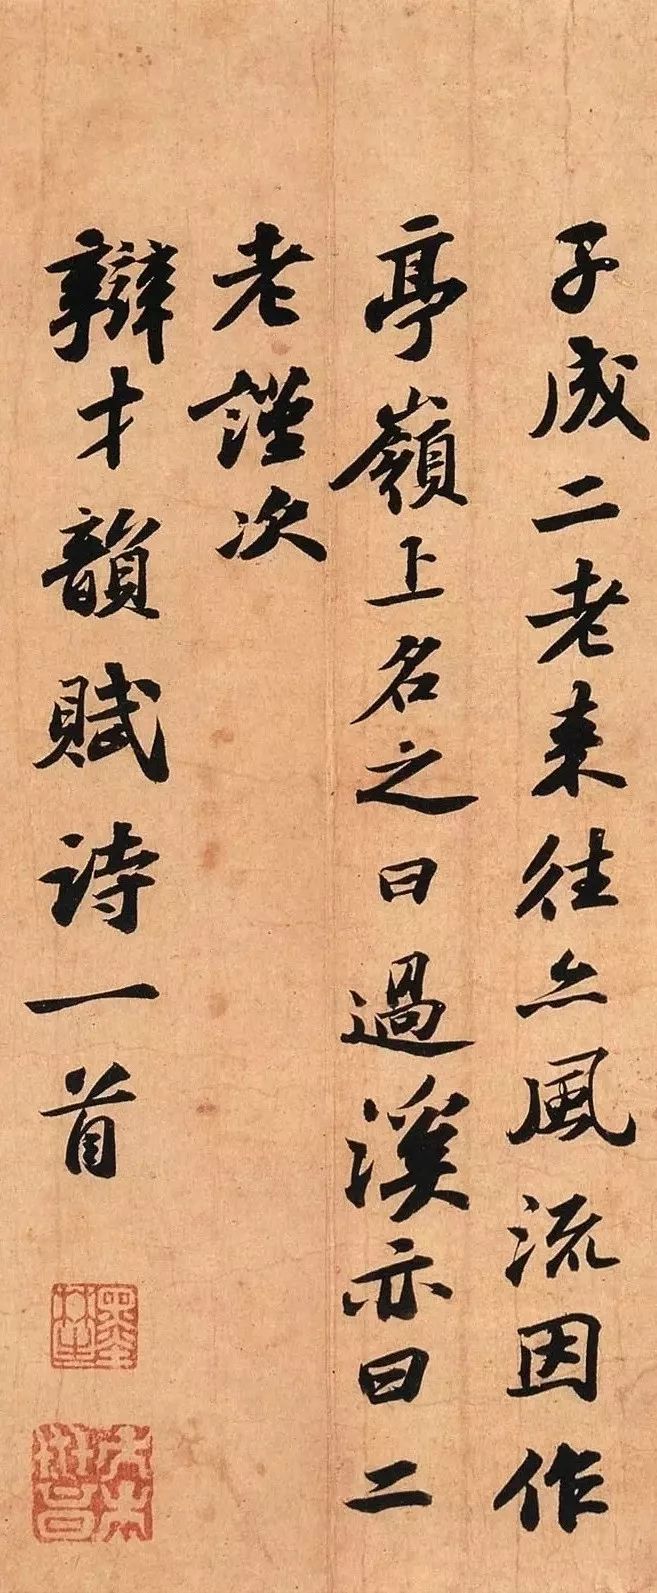 子成二老来往亦風流因作
亭嶺上名之曰過溪亦曰二
老謹次
辯才韻賦詩一首
墨林